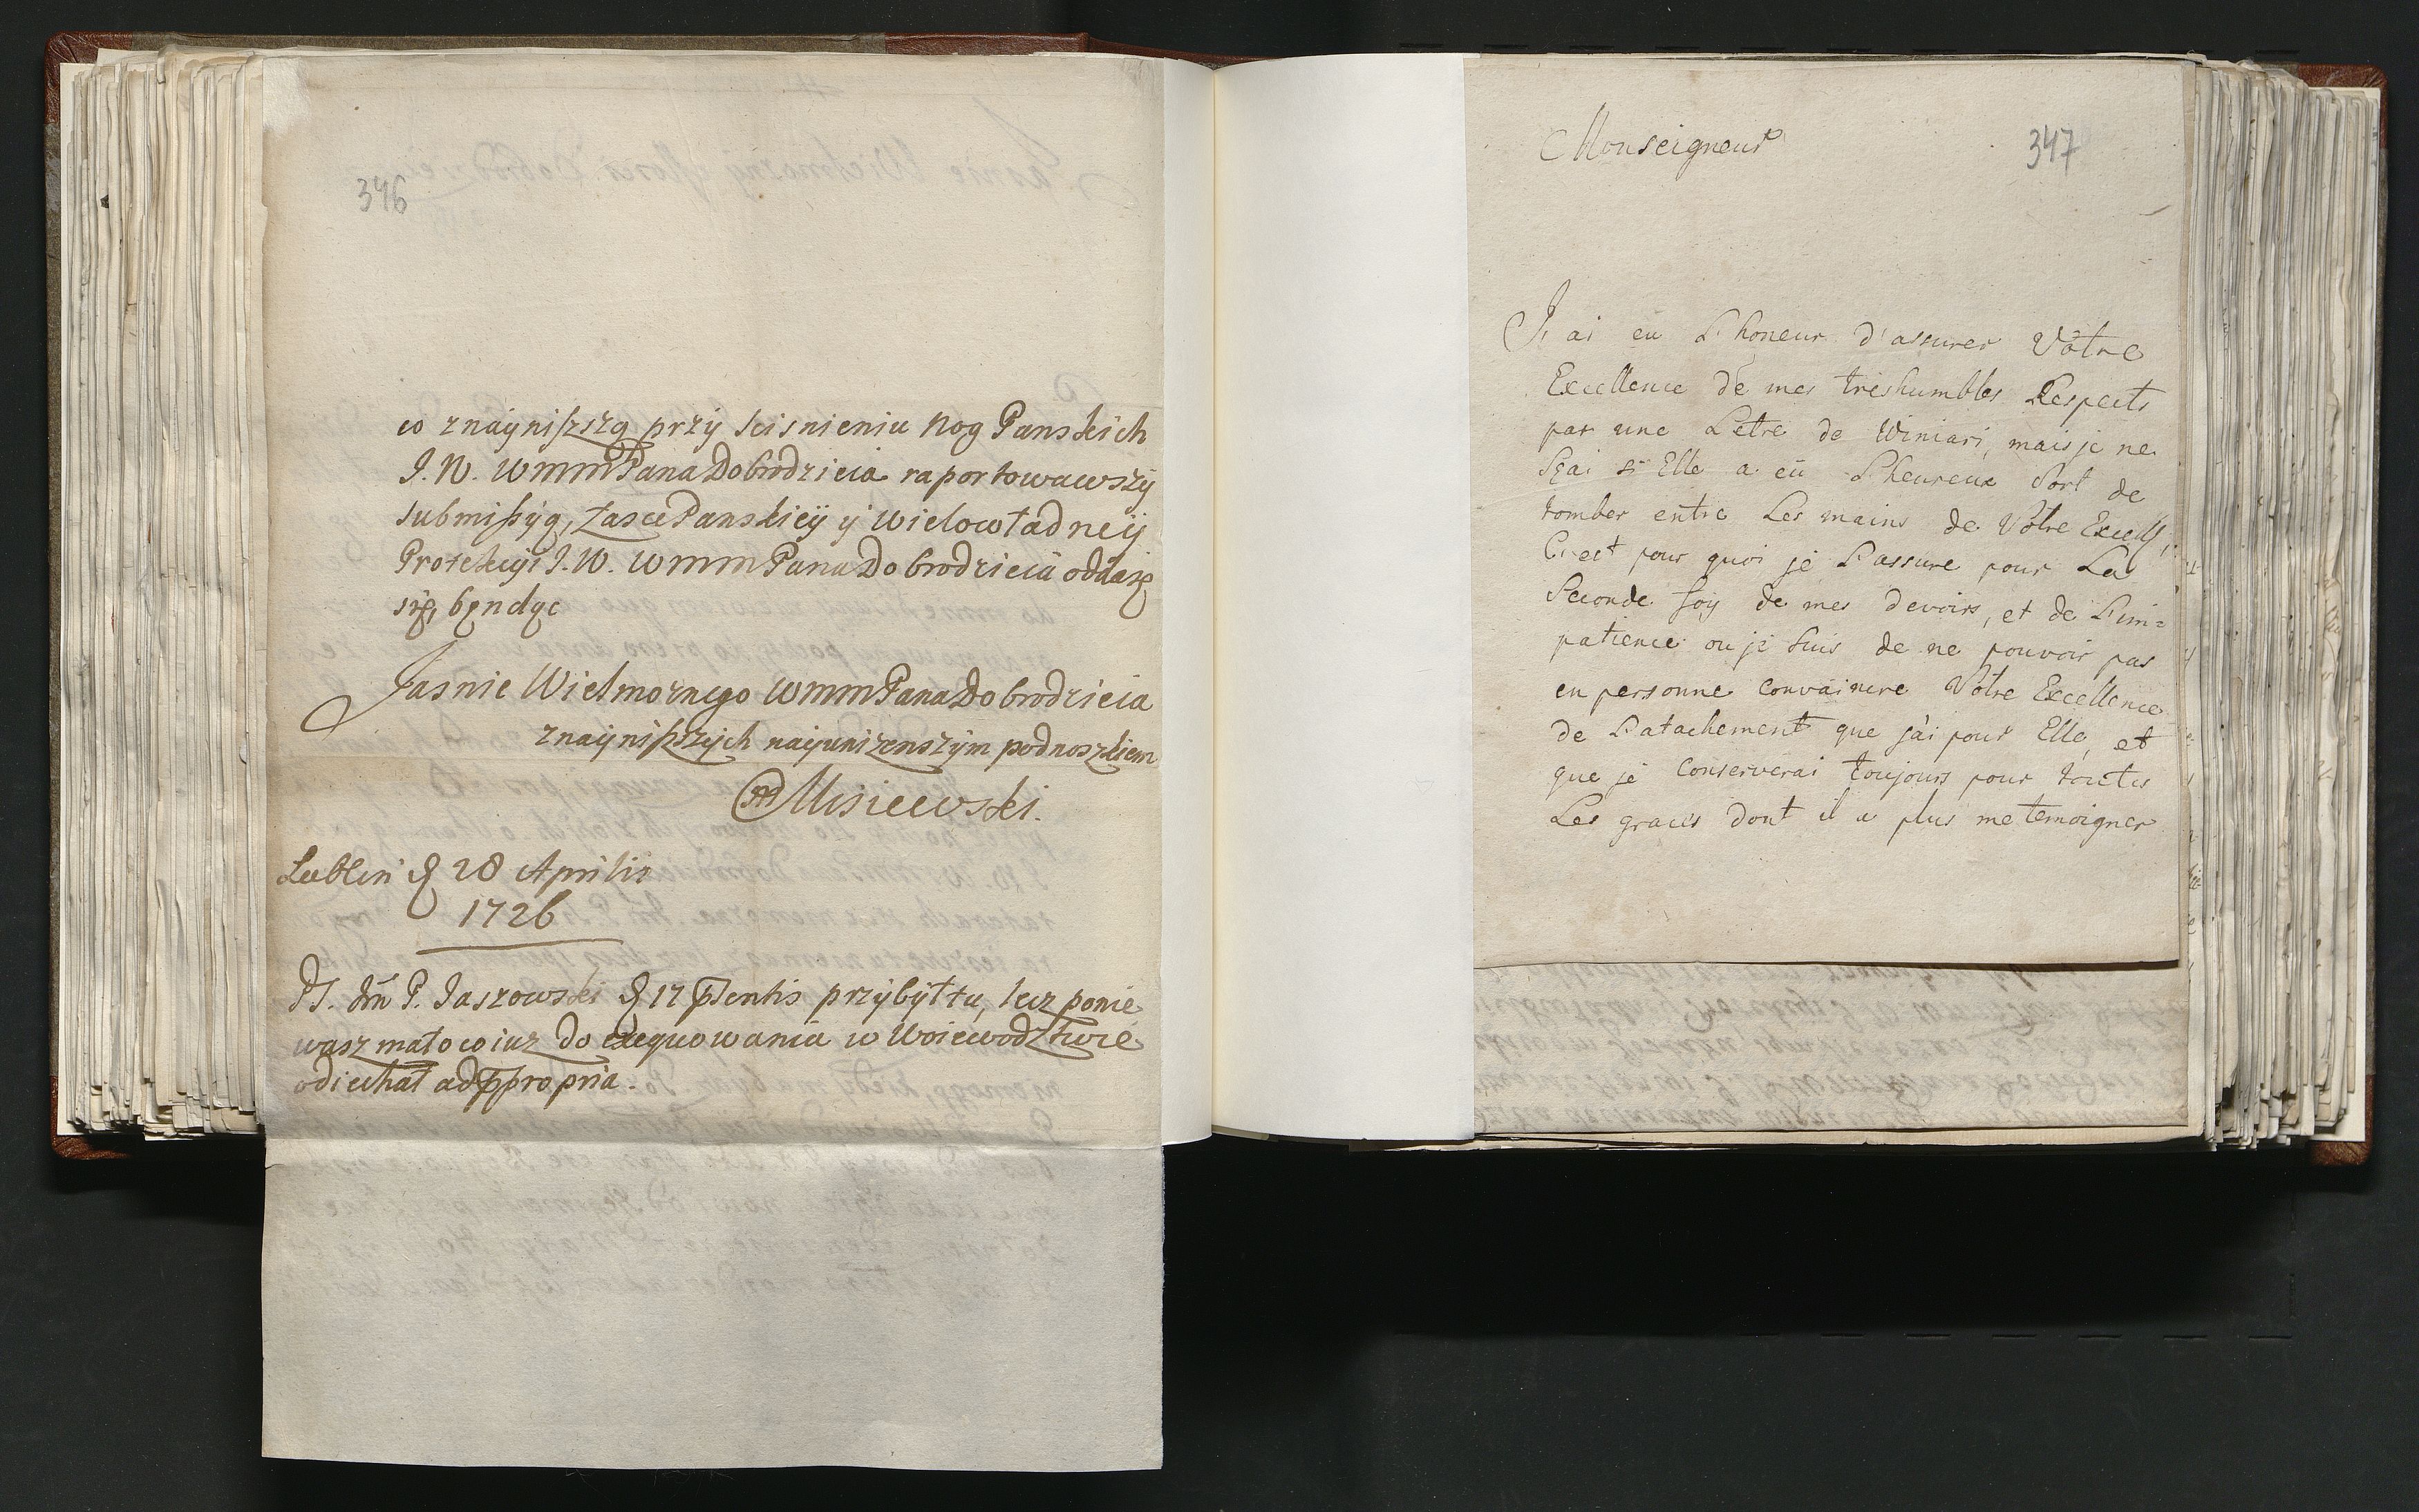 346
co znaÿniższą przÿ scisnieniu Nog Panskich
J. W. WmmPana Dobrodzieia raportowawszÿ
submißÿą, łasce Panskieÿ ÿ Wielowładneÿ
Protekcÿi J. W. WmmPana Dobrodzieia oddaię
się, będąc
Jasnie Wielmoznego WmmPana Dobrodzieia
znaÿniższÿch naÿunizenszÿm podnoszkiem
Misiewski.
Lublin d 28 Aprilis
1726
PS. Jm̃ P. Jaszowski d 17 p̃sentis przÿbÿł tu, lecz ponie
wasz mało co iuz do exequowania w Woiewodztwie
odiechał ad propria.
347
Monseigneur
J'ai eu L'honeur d'assurer Vôtre
Excellence de mes treshumbles Respects
par une Letre de Winiari, mais je ne
Sçai si Elle a eu L'heureux Sort de
tomber entre Les mains de Vôtre Excell;
C'est pour quoi je L'assure pour La
Seconde foy de mes devoirs, et de L'im=
patience ou je suis de ne pouvoir pas
en personne convaincre Vôtre Excellence
de L'atachement que j'ai pour Elle, et
que je Conserverai toujours pour toutes
Les graces dont il a plus me temoigner